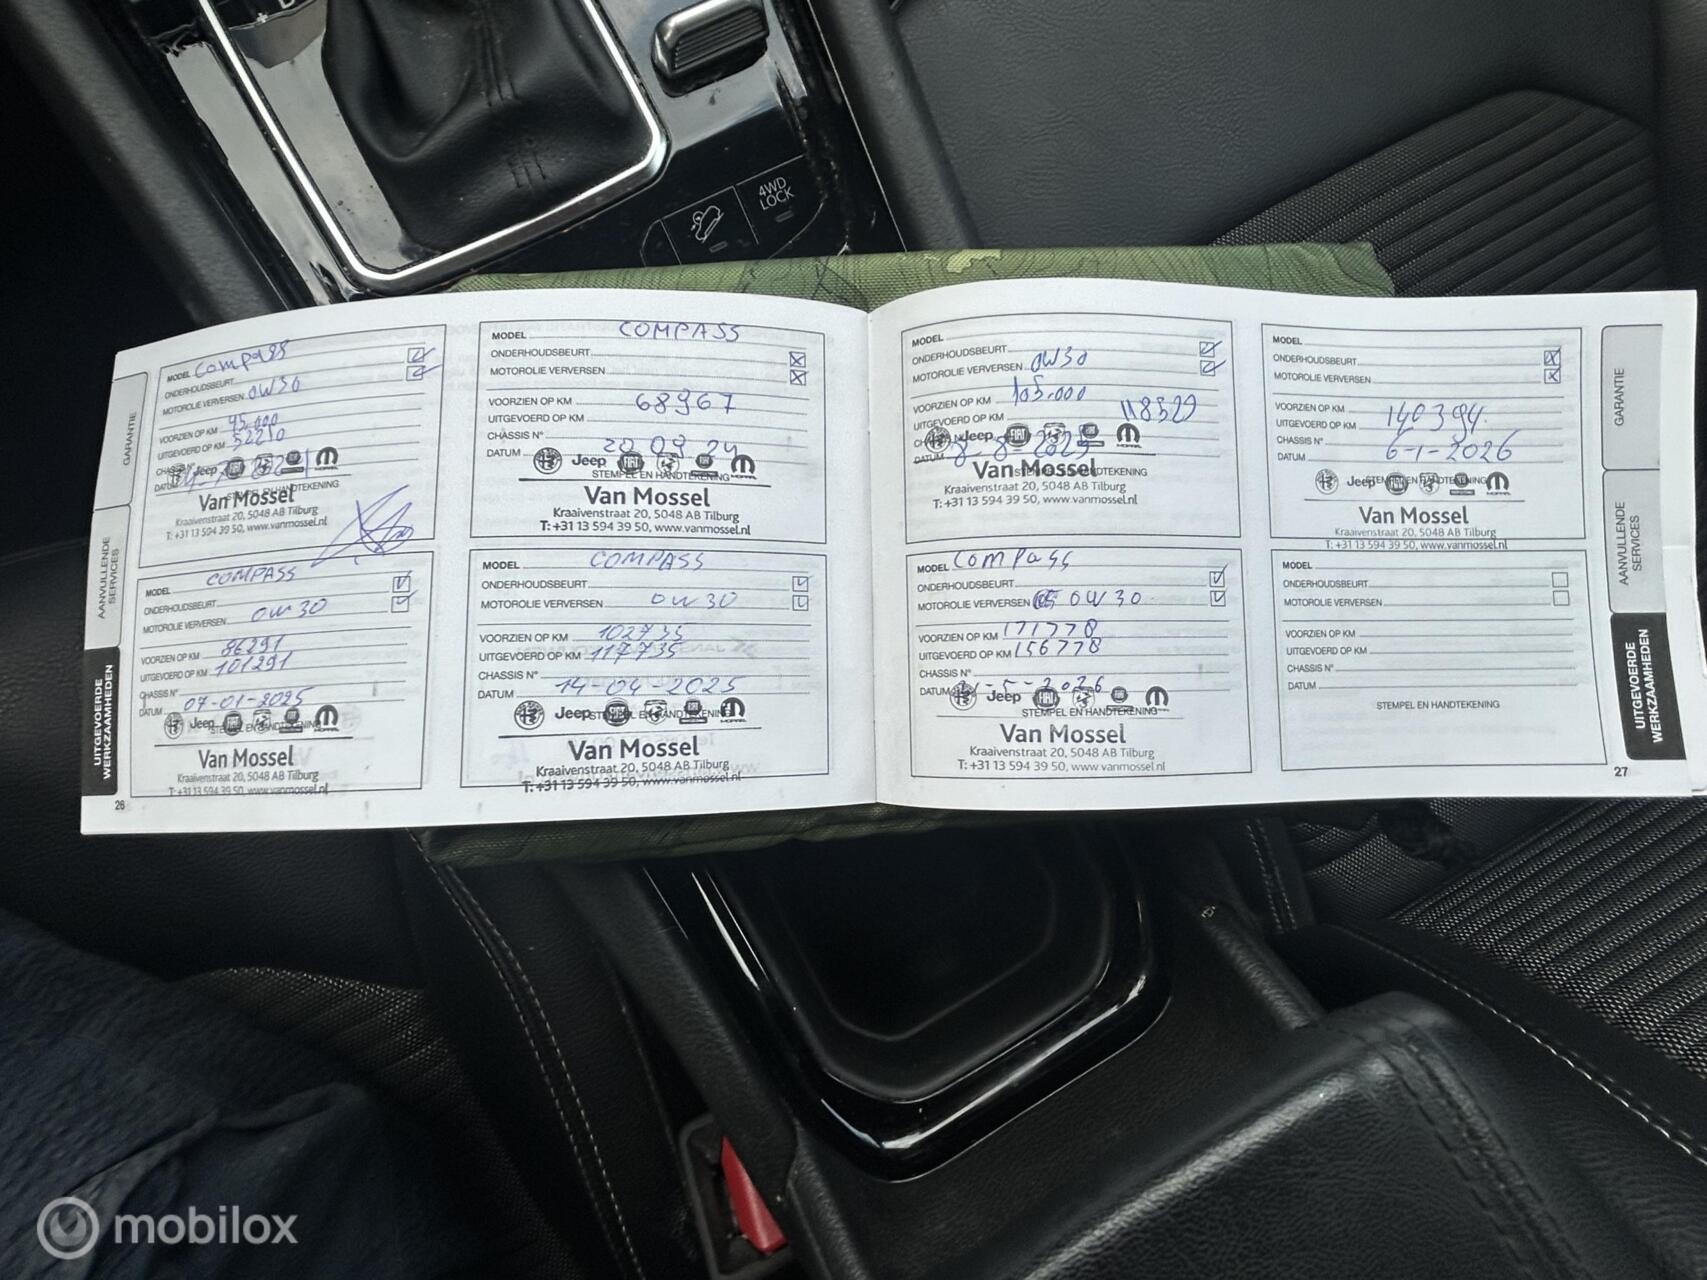 4WD
LOCK
GARANTIE
AANVULLENDE
SERVICES
UITGEVOERDE
WERKZAAMHEDEN
MODEL Compass
ONDERHOUDSBEURT
MOTOROLIE VERVERSEN 0W30
VOORZIEN OP KM 45.000
UITGEVOERD OP KM 52210
DATUM
STEMPEL EN HANDTEKENING
Jeep
FIAT
MOPAR
Van Mossel
Kraaivenstraat 20, 5048 AB Tilburg
T: +31 13 594 39 50, www.vanmossel.nl
MODEL COMPASS
ONDERHOUDSBEURT
MOTOROLIE VERVERSEN
VOORZIEN OP KM 68967
UITGEVOERD OP KM
CHASSIS N°
DATUM 20 09 24
Jeep
FIAT
MOPAR
STEMPEL EN HANDTEKENING
Van Mossel
Kraaivenstraat 20, 5048 AB Tilburg
T: +31 13 594 39 50, www.vanmossel.nl
MODEL COMPASS
ONDERHOUDSBEURT
MOTOROLIE VERVERSEN 0W30
VOORZIEN OP KM 86291
UITGEVOERD OP KM 101291
CHASSIS N°
DATUM 07-01-2025
Jeep
FIAT
MOPAR
STEMPEL EN HANDTEKENING
Van Mossel
Kraaivenstraat 20, 5048 AB Tilburg
T: +31 13 594 39 50, www.vanmossel.nl
MODEL COMPASS
ONDERHOUDSBEURT
MOTOROLIE VERVERSEN 0W30
VOORZIEN OP KM 102735
UITGEVOERD OP KM 117735
CHASSIS N°
DATUM 14-04-2025
Jeep
FIAT
MOPAR
STEMPEL EN HANDTEKENING
Van Mossel
Kraaivenstraat 20, 5048 AB Tilburg
T: +31 13 594 39 50, www.vanmossel.nl
26
MODEL
ONDERHOUDSBEURT
MOTOROLIE VERVERSEN 0W30
VOORZIEN OP KM 105.000
UITGEVOERD OP KM 118529
DATUM 8-8-2025
Jeep
FIAT
MOPAR
STEMPEL EN HANDTEKENING
Van Mossel
Kraaivenstraat 20, 5048 AB Tilburg
T: +31 13 594 39 50, www.vanmossel.nl
MODEL
ONDERHOUDSBEURT
MOTOROLIE VERVERSEN
VOORZIEN OP KM
UITGEVOERD OP KM 140394
CHASSIS N°
DATUM 6-1-2026
STEMPEL EN HANDTEKENING
Jeep
FIAT
MOPAR
Van Mossel
Kraaivenstraat 20, 5048 AB Tilburg
T: +31 13 594 39 50, www.vanmossel.nl
MODEL Compass
ONDERHOUDSBEURT
MOTOROLIE VERVERSEN 0W30
VOORZIEN OP KM 171778
UITGEVOERD OP KM 156778
CHASSIS N°
DATUM -5-2026
Jeep
FIAT
MOPAR
STEMPEL EN HANDTEKENING
Van Mossel
Kraaivenstraat 20, 5048 AB Tilburg
T: +31 13 594 39 50, www.vanmossel.nl
MODEL
ONDERHOUDSBEURT
MOTOROLIE VERVERSEN
VOORZIEN OP KM
UITGEVOERD OP KM
CHASSIS N°
DATUM
STEMPEL EN HANDTEKENING
GARANTIE
AANVULLENDE
SERVICES
UITGEVOERDE
WERKZAAMHEDEN
27
mobilox